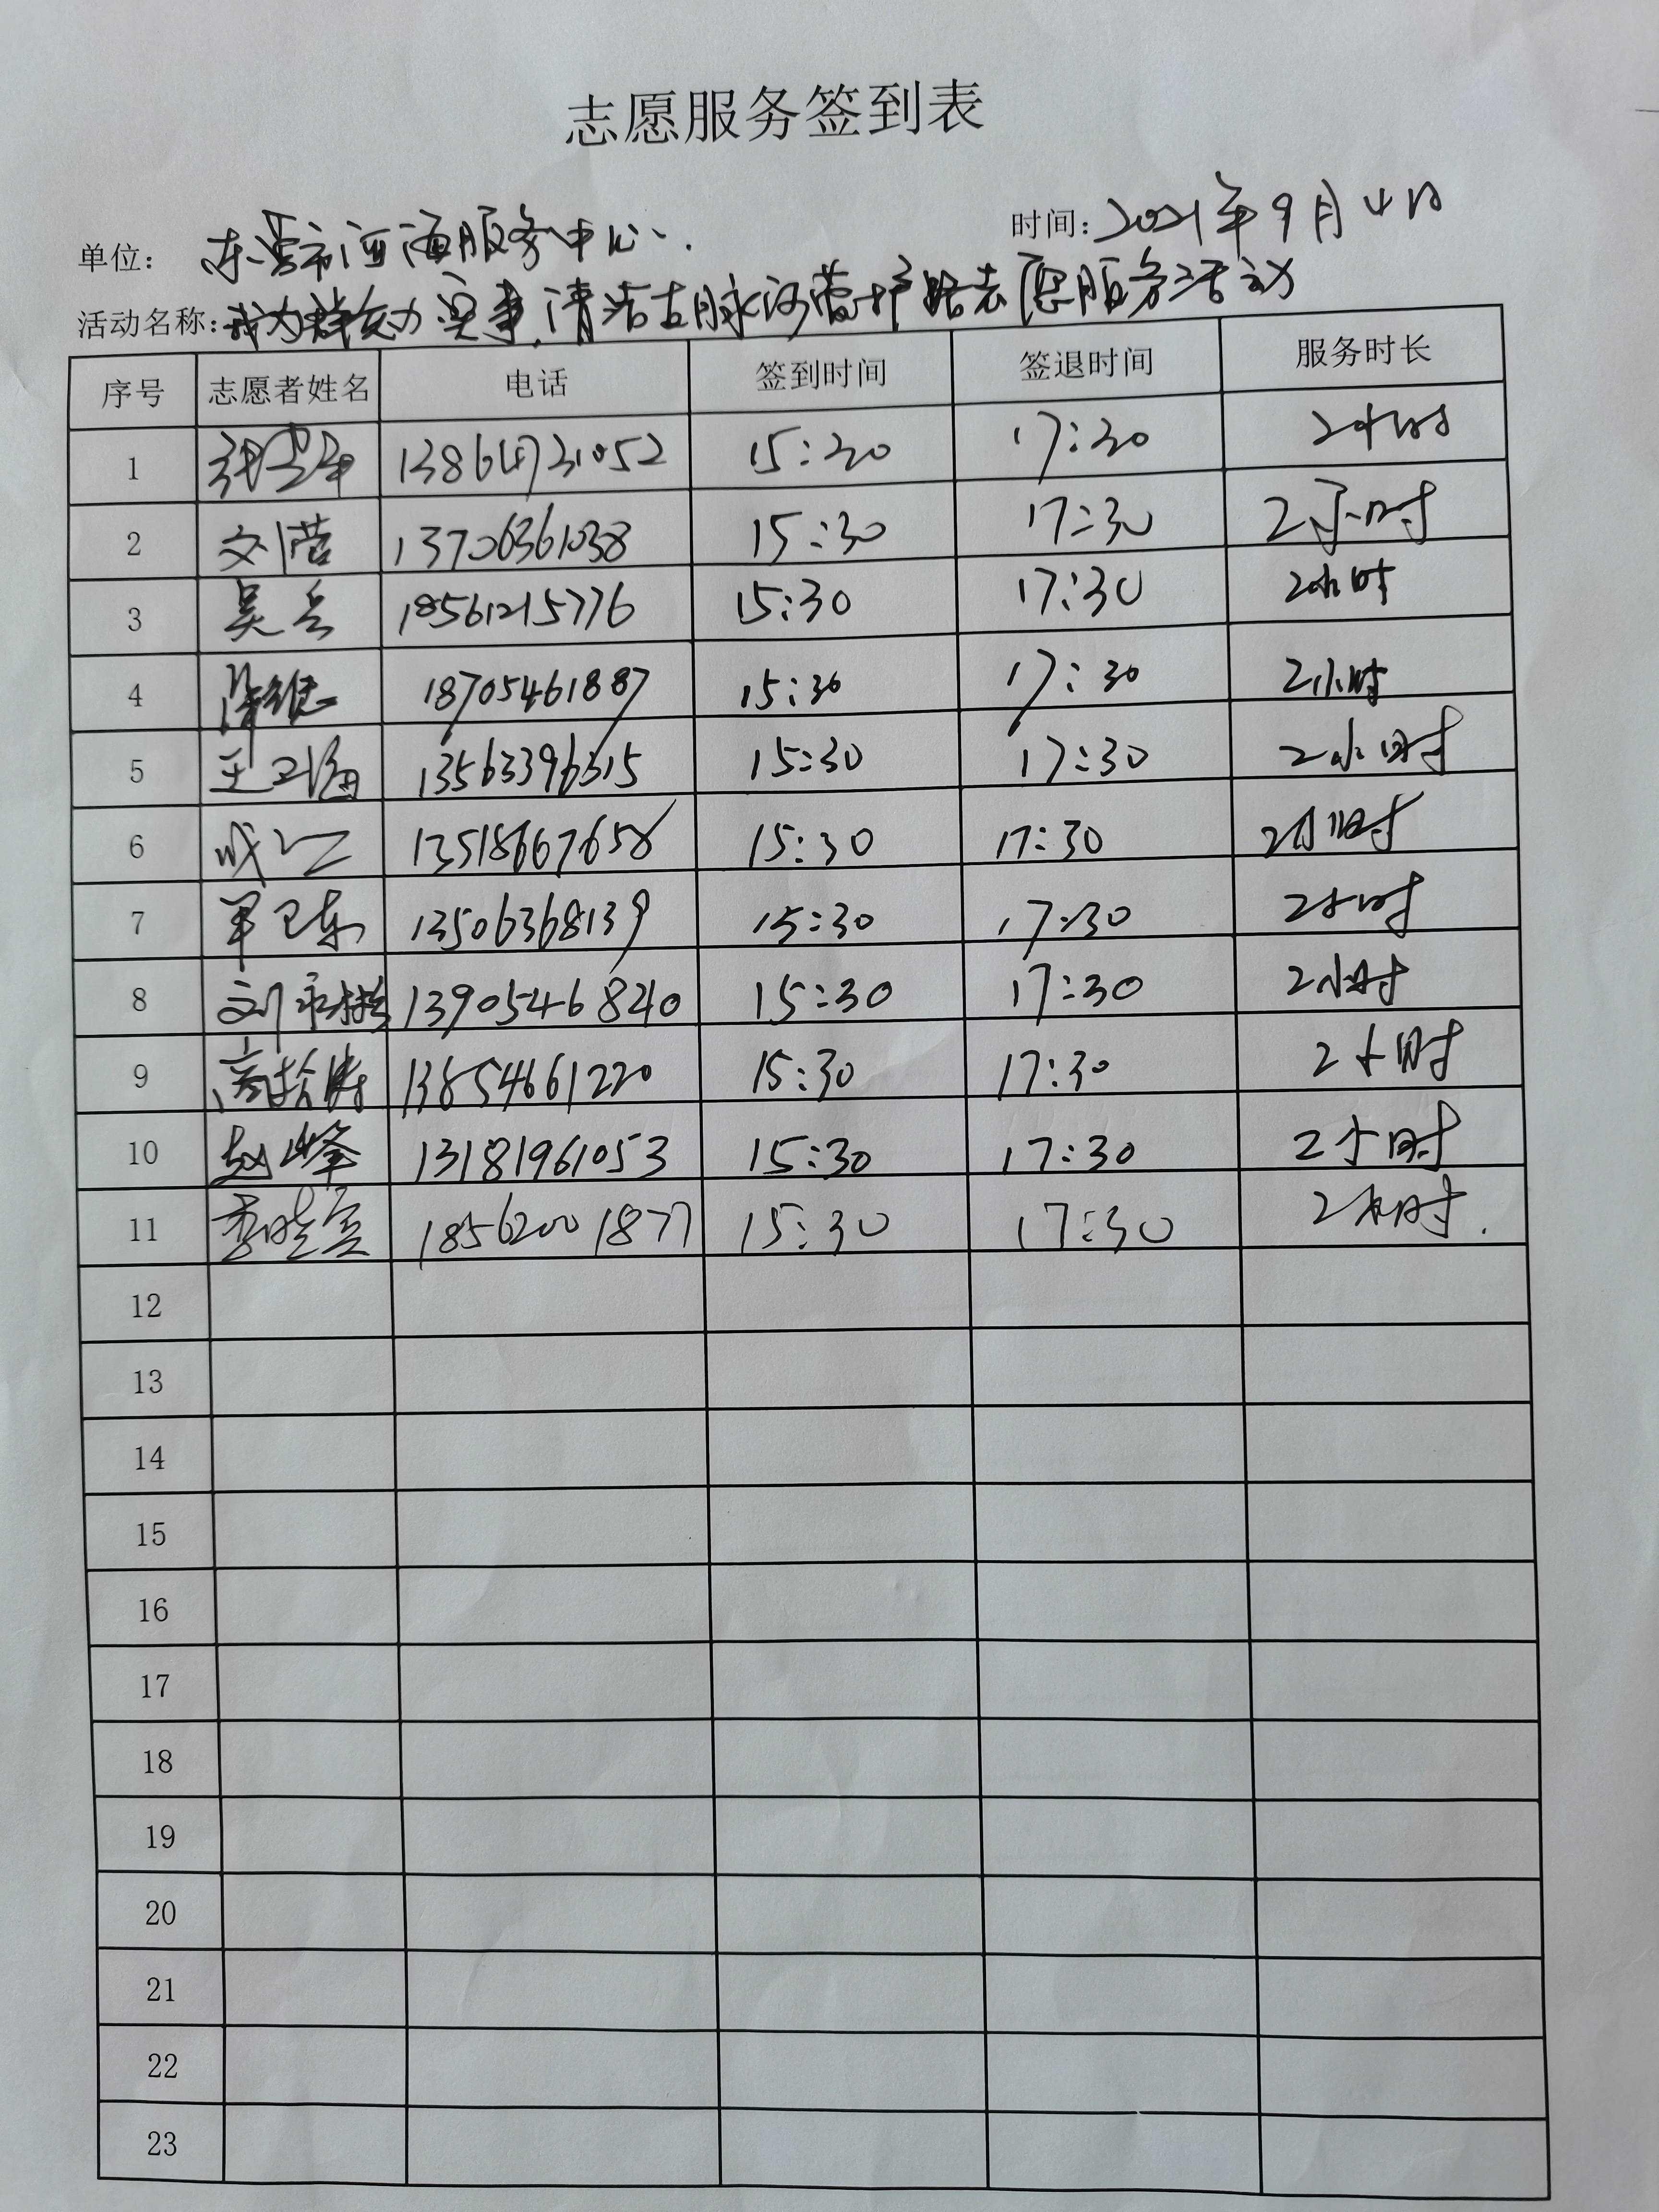 志愿服务签到表
单位: 东营市河海服务中心. 时间: 2021年9月4日
活动名称: 我为群众办实事,清洁 护路志愿服务活动
序号 志愿者姓名 电话 签到时间 签退时间 服务时长
1 13864731052 15:30 17:30 2小时
2 刘营 13706361038 15:30 17:30 2小时
3 吴兵 18561215776 15:30 17:30 2小时
4 18705461887 15:30 17:30 2小时
5 王卫海 13563396315 15:30 17:30 2小时
6 13518667658 15:30 17:30 2小时
7 单卫东 13506368139 15:30 17:30 2小时
8 13905468240 15:30 17:30 2小时
9 13854661220 15:30 17:30 2小时
10 赵峰 13181961053 15:30 17:30 2小时
11 李晓宣 18562001877 15:30 17:30 2小时.
12
13
14
15
16
17
18
19
20
21
22
23